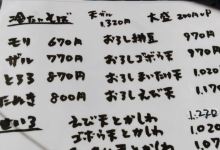 冷たいそば 天ザル 1,320円 大盛 200円UP
モリ 670円 おろし納豆 970円
ザル 770円 おろしゴボウ天 970円
とろろ 870円 おろしまいたけ天 1,020
たぬき 800円 おろしえび天 1,170
えび天とかしわ 1,270
ゴボウ天とかしわ 1,020
天とかしわ